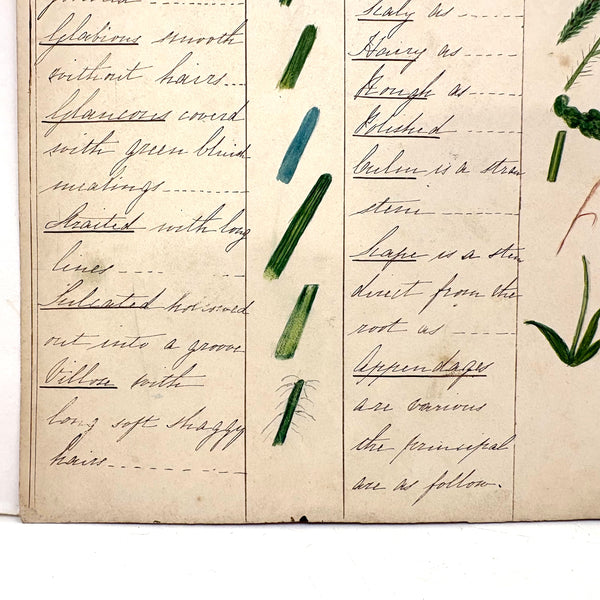 Glabious smooth
without hairs...
Glaucous coverd
with green bluish
mealings
Straited with long
lines
Sulcated hollowed
out into a groove
Villose with
long soft shaggy
hairs
Scaly as
Hairy as
Rough as
Polished
Culm is a straw
stem
Scape is a stem
direct from the
root as
Appendages
are various
the principal
are as follow.